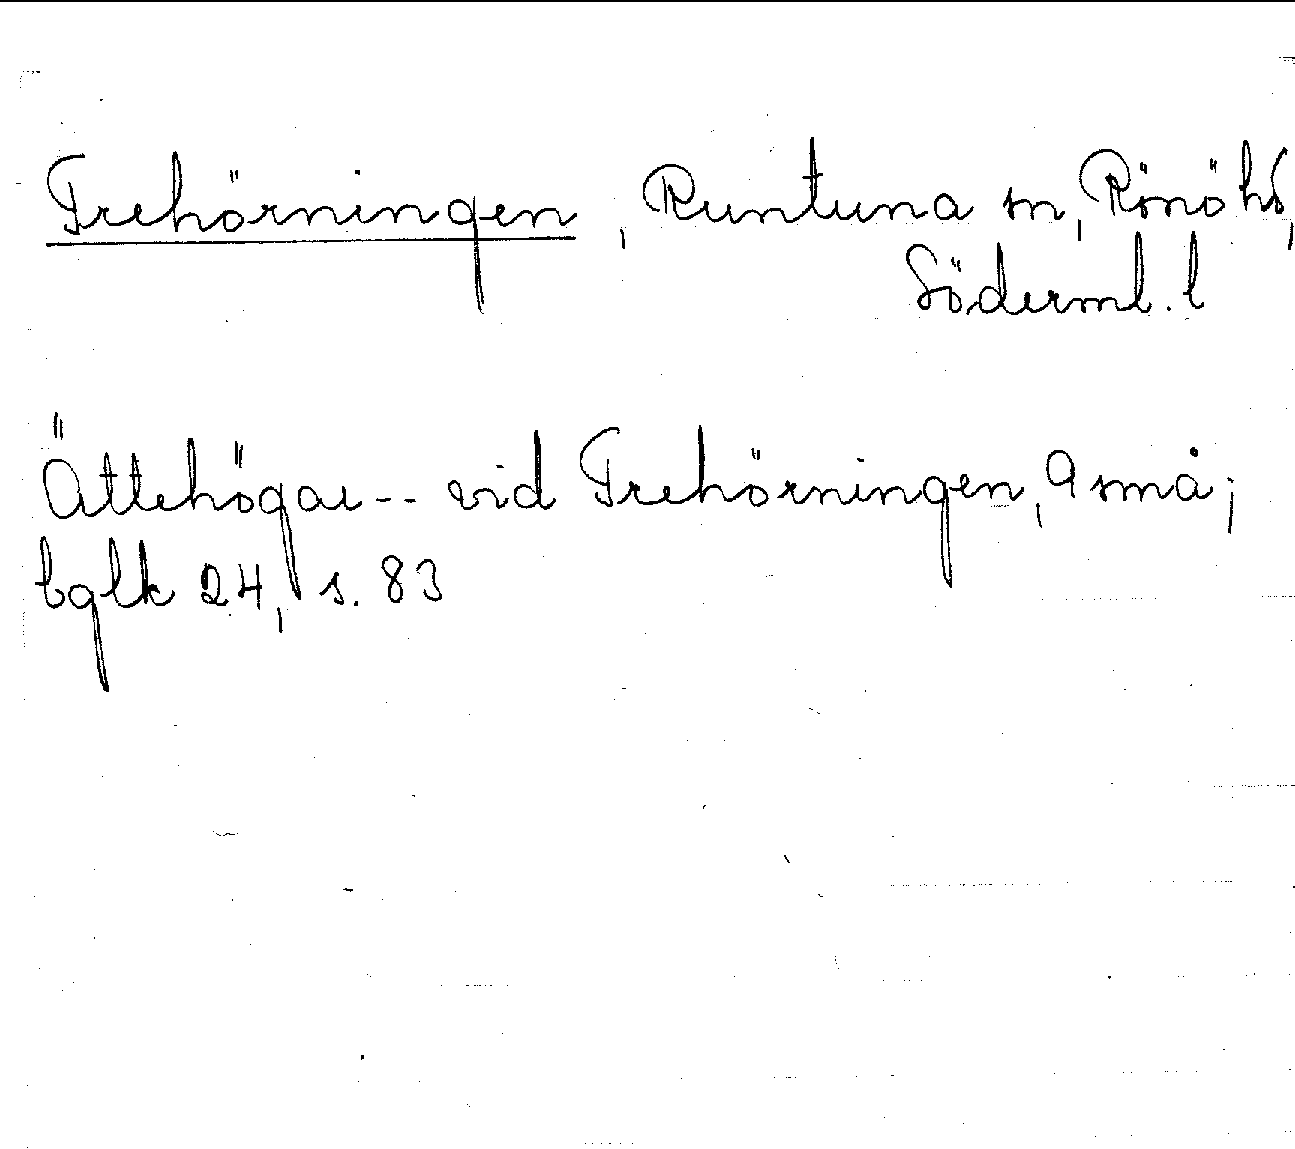 Trehörningen, Runtuna sn, Rönö hd,
Söderml. l
Ättehögar -- vid Trehörningen, 9 små;
bglk 24, s. 83